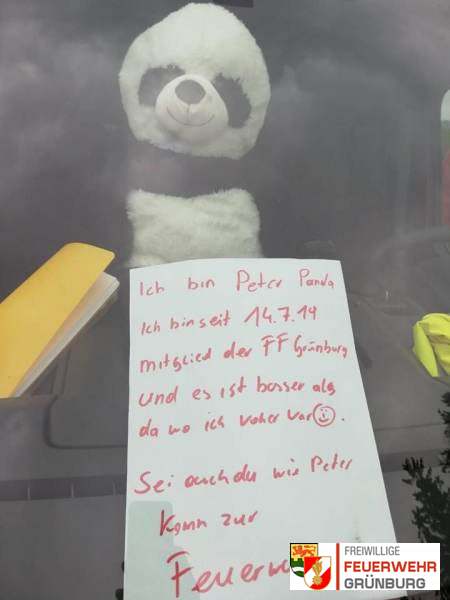 Ich bin Peter Panda
Ich bin seit 14.7.19
mitglied der FF Grünburg
und es ist besser als
da wo ich voher war☺.
Sei auch du wie Peter
Komm zur
FREIWILLIGE
FEUERWEHR
GRÜNBURG